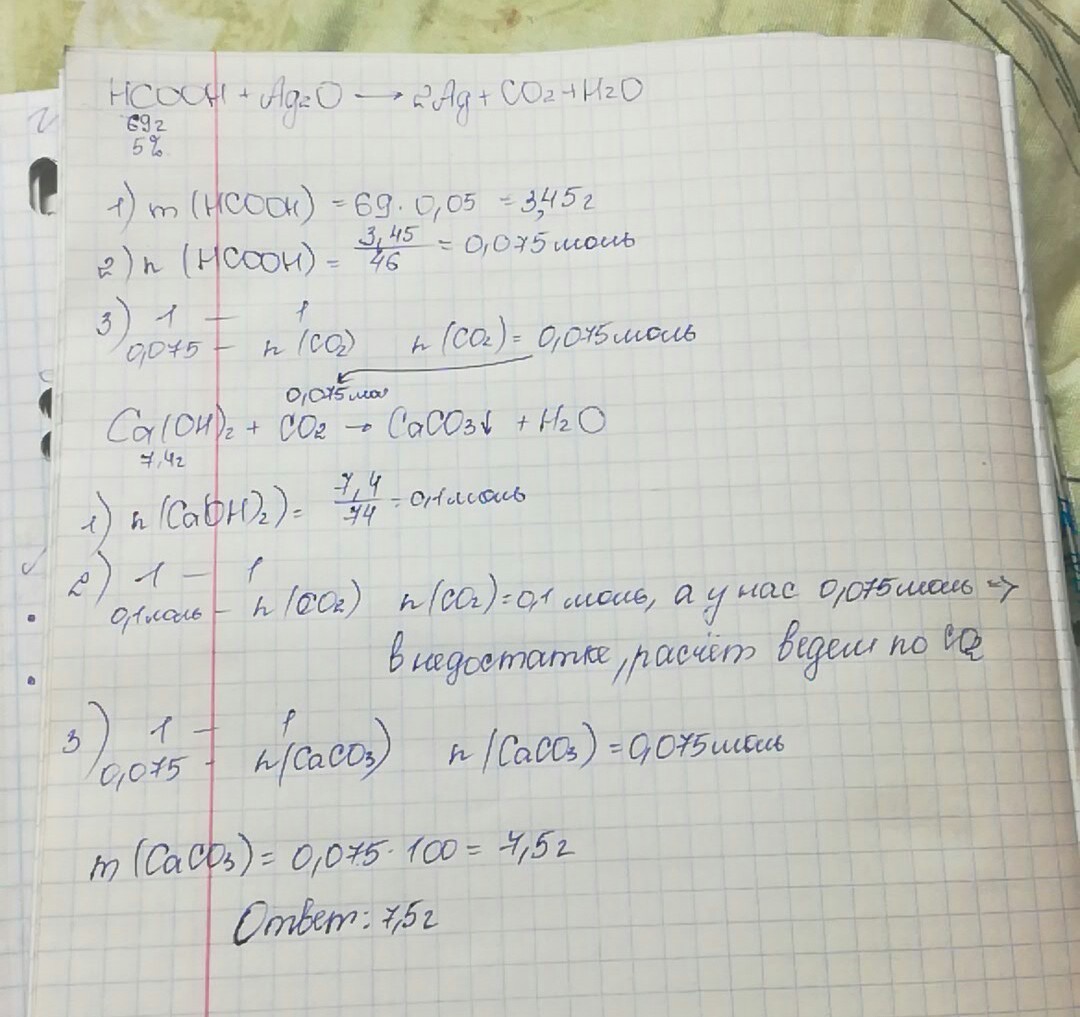 HCOOH + Ag₂O → 2Ag + CO₂ + H₂O
69г
5%
1) m (HCOOH) = 69 · 0,05 = 3,45г
2) n (HCOOH) = 3,45/46 = 0,075 моль
3) 1 — 1
0,075 — n (CO₂) n (CO₂) = 0,075 моль
0,075 мол
Ca(OH)₂ + CO₂ → CaCO₃↓ + H₂O
7,4г
1) n (Ca(OH)₂) = 7,4/74 = 0,1 моль
2) 1 — 1
0,1 моль — n (CO₂) n (CO₂) = 0,1 моль, а у нас 0,075 моль ⇒
в недостатке, расчёт ведем по CO₂
3) 1 — 1
0,075 — n (CaCO₃) n (CaCO₃) = 0,075 моль
m (CaCO₃) = 0,075 · 100 = 7,5г
Ответ: 7,5г